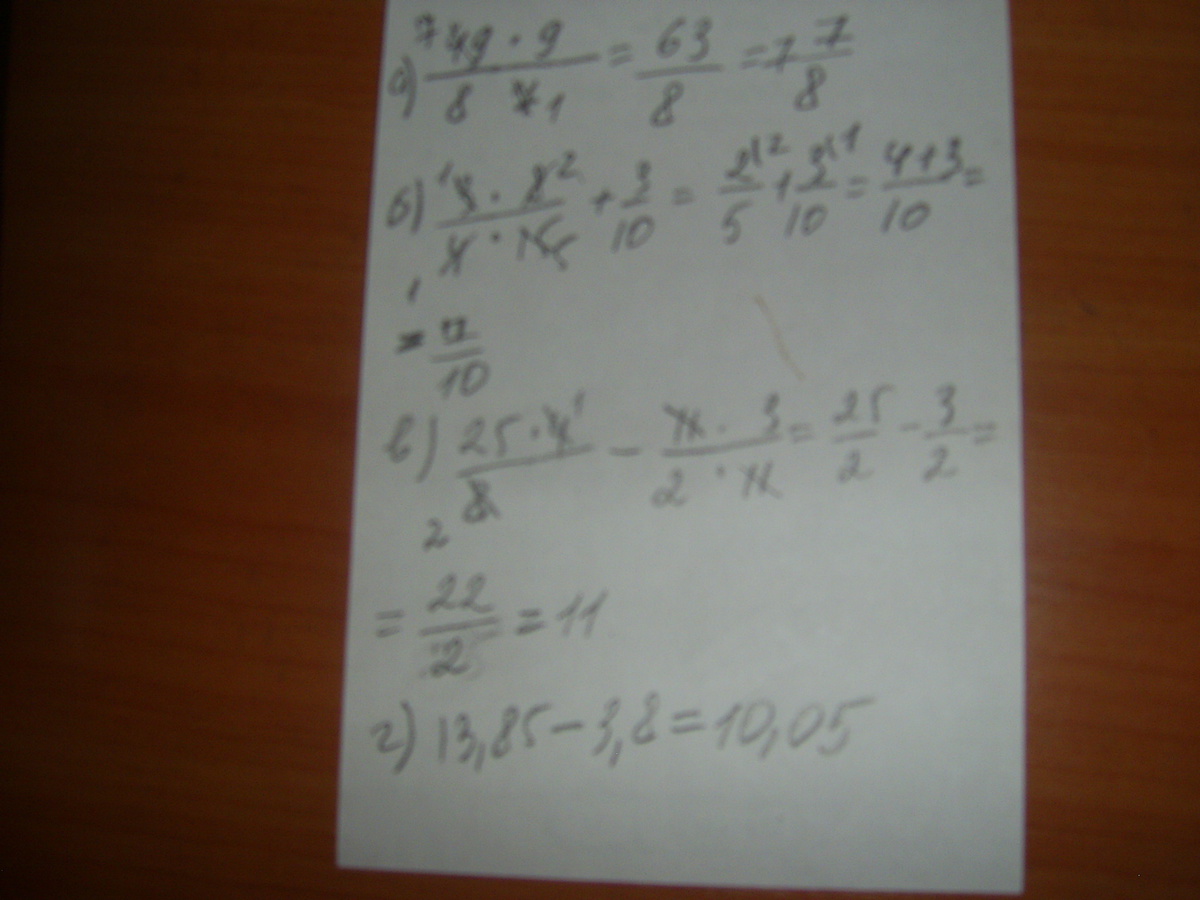 а) ⁷49 · 9 / 8 7₁ = 63/8 = 7 7/8
б) ¹3 · 8² / ₁4 · 15₅ + 3/10 = 2\²/5 + 3\¹/10 = 4+3/10 =
= 7/10
в) 25 · 4¹ / ₂8 - 11 · 3 / 2 · 11 = 25/2 - 3/2 =
= 22/2 = 11
г) 13,85 - 3,8 = 10,05